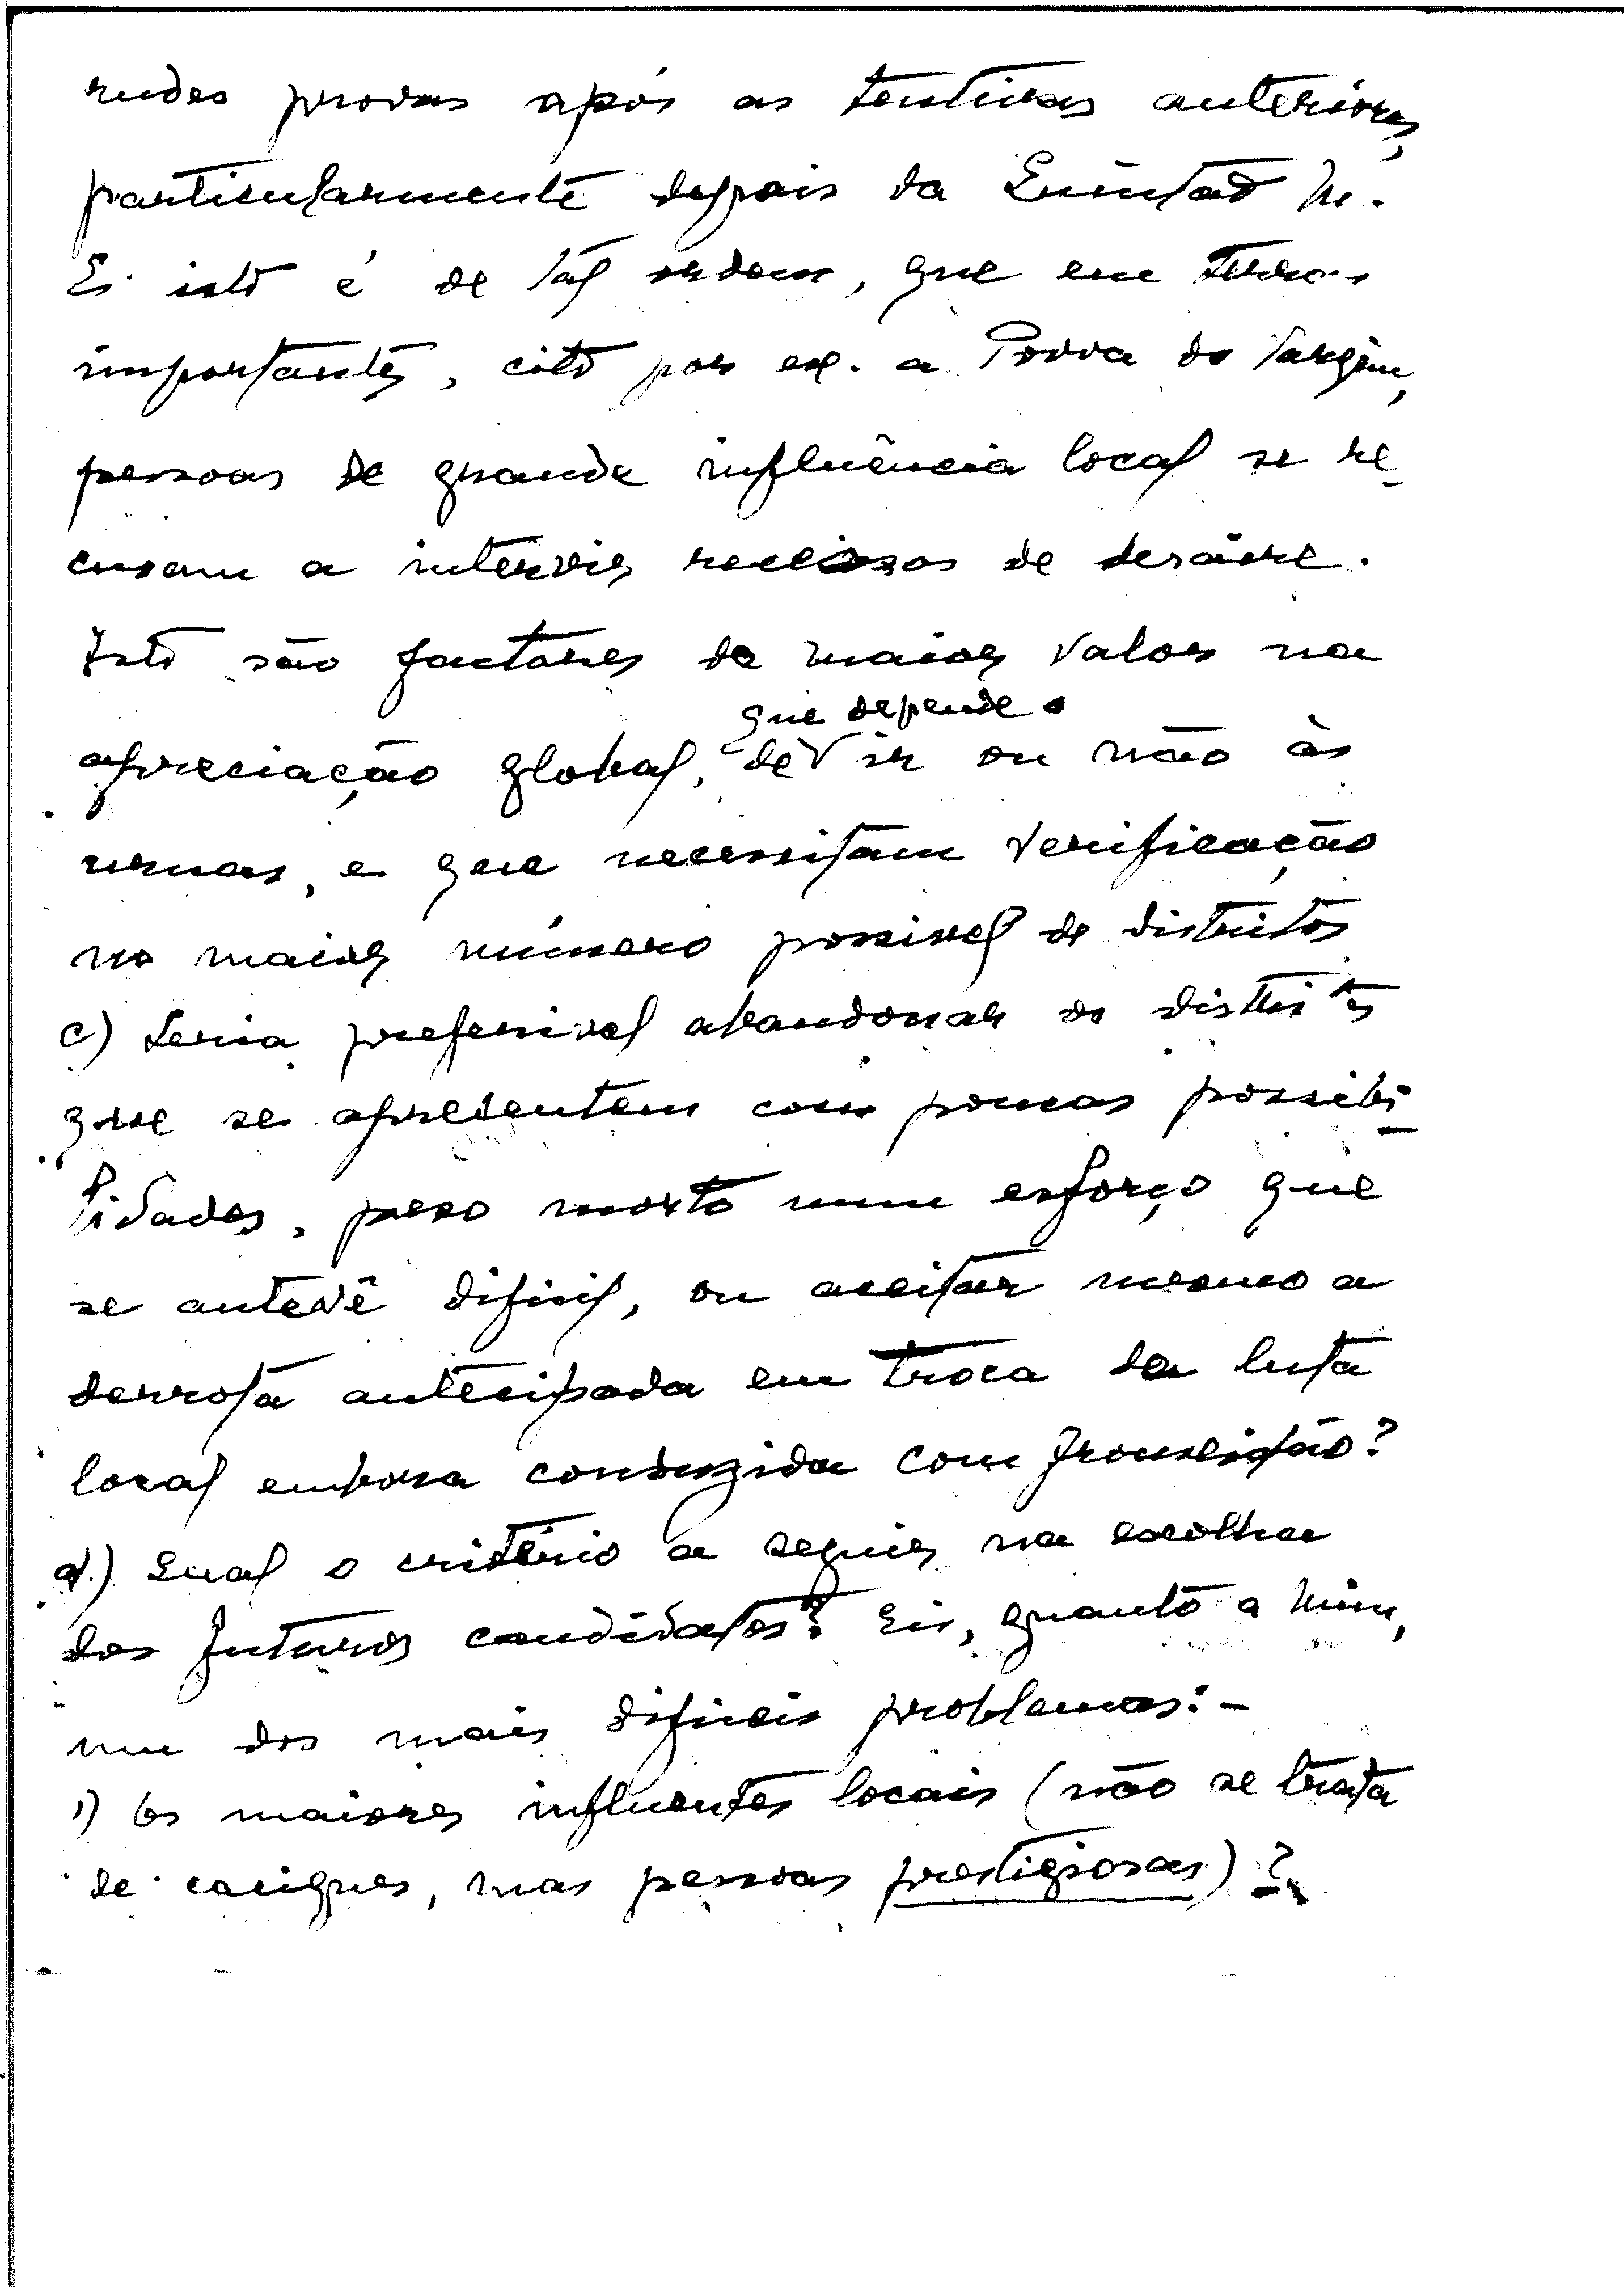 rudes provas após as tentivas anteriores,
particularmente depois da
E isto é de tal ordem, que em terras
importantes, cito por ex. a Povoa do Vargim,
pessoas de grande influência local se re-
cusam a intervir receosos de desaire.
Isto são factores de maior valor na
que depende o
apreciação global, de ir ou não às
urnas, e que necessitam verificação
no maior número possivel de distritos
c) Seria preferivel abandonar os distritos
que se apresentem com poucas possibi-
lidades, peso morto num esforço que
se antevê dificil, ou aceitar mesmo a
derrota antecipada em troca da luta
local embora conduzida com frouxidão?
d) Qual o critério a seguir na escolha
dos futuros candidatos? Eis, quanto a mim,
um dos mais dificeis problemas:-
1) Os maiores influentes locais (não se trata
de caciques, mas pessoas prestigiosas)?